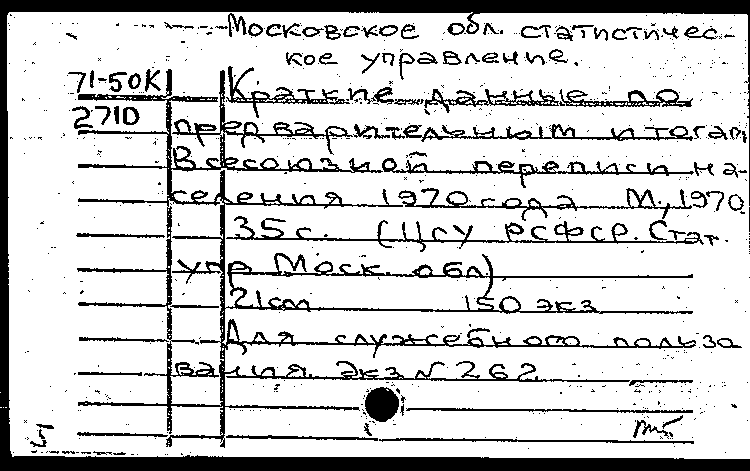 Московское обл. статистичес-
кое управление.
71-50К Краткие данные по
2710 предварительным итогам
Всесоюзной переписи на-
селения 1970 года М., 1970
35 с. (ЦСУ РСФСР. Стат.
упр Моск. обл)
21см 150 экз
Для служебного пользо
вания. Экз № 262